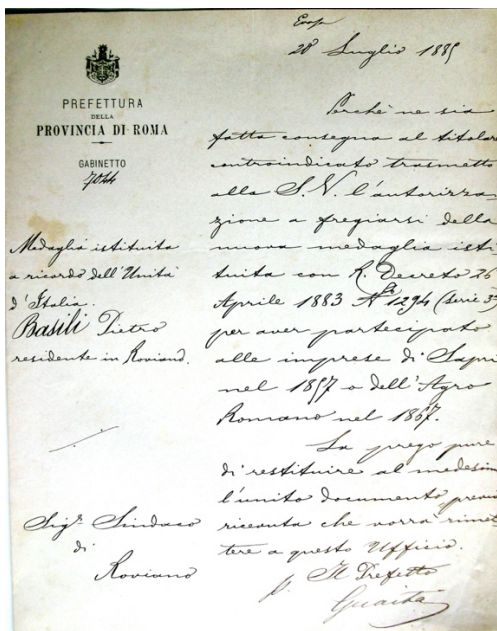 28 Luglio 1885
PREFETTURA
DELLA
PROVINCIA DI ROMA
GABINETTO
7044
Medaglia istituita
a ricordo dell'Unità
d'Italia.
Basili Pietro
residente in Roviano.
Sigr. Sindaco
di
Roviano
Perchè ne sia
fatta consegna al titolare
controindicato trasmetto
alla S. V. l'autorizza=
zione a fregiarsi della
nuova medaglia isti
tuita con R. Decreto 26
Aprile 1883 No 1294 (Serie 3a)
per aver partecipato
alle imprese di Sapri
nel 1857 o dell'Agro
Romano nel 1867.
La prego pure
di restituire al medesim
l'unito documento previa
ricevuta che vorrà rimet
tere a questo Ufficio.
p. Il Prefetto
Guaita